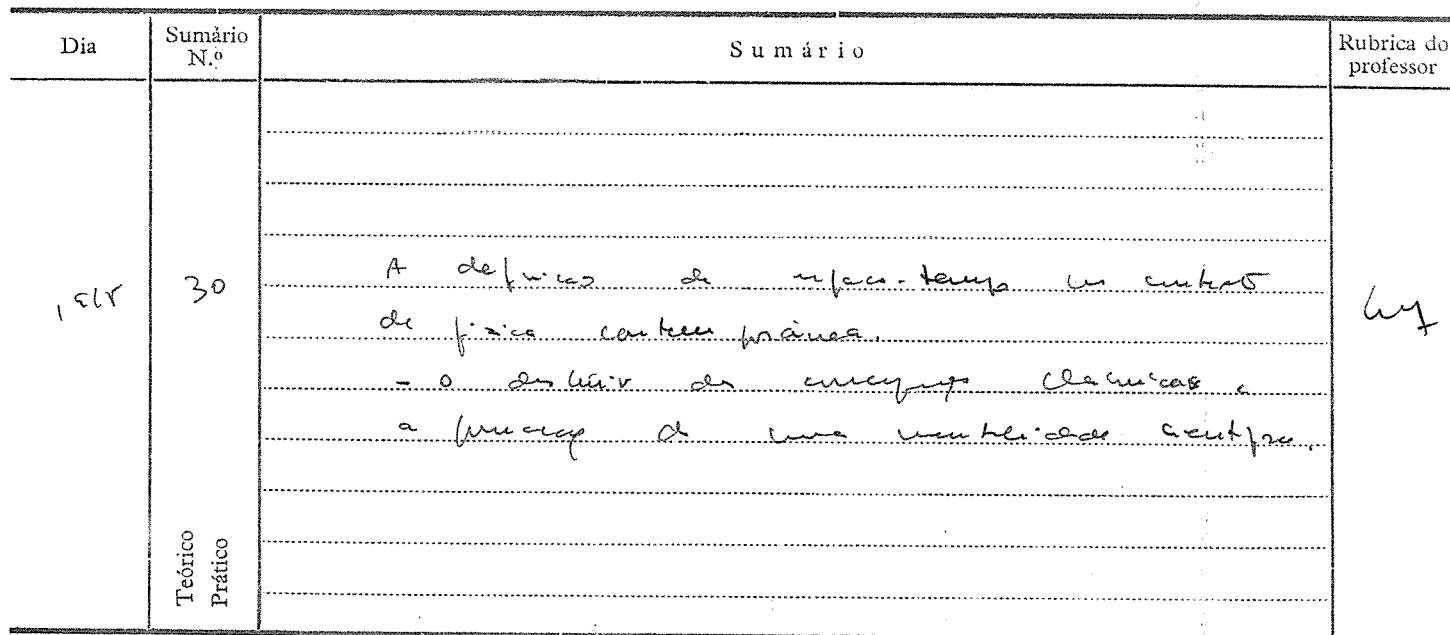 Dia
Sumário N.º
Sumário
Rubrica do professor
30
A definição de espaço-tempo no contexto
de física contemporânea.
- o das concepções clássicas e
a de uma mentalidade científica.
Teórico
Prático